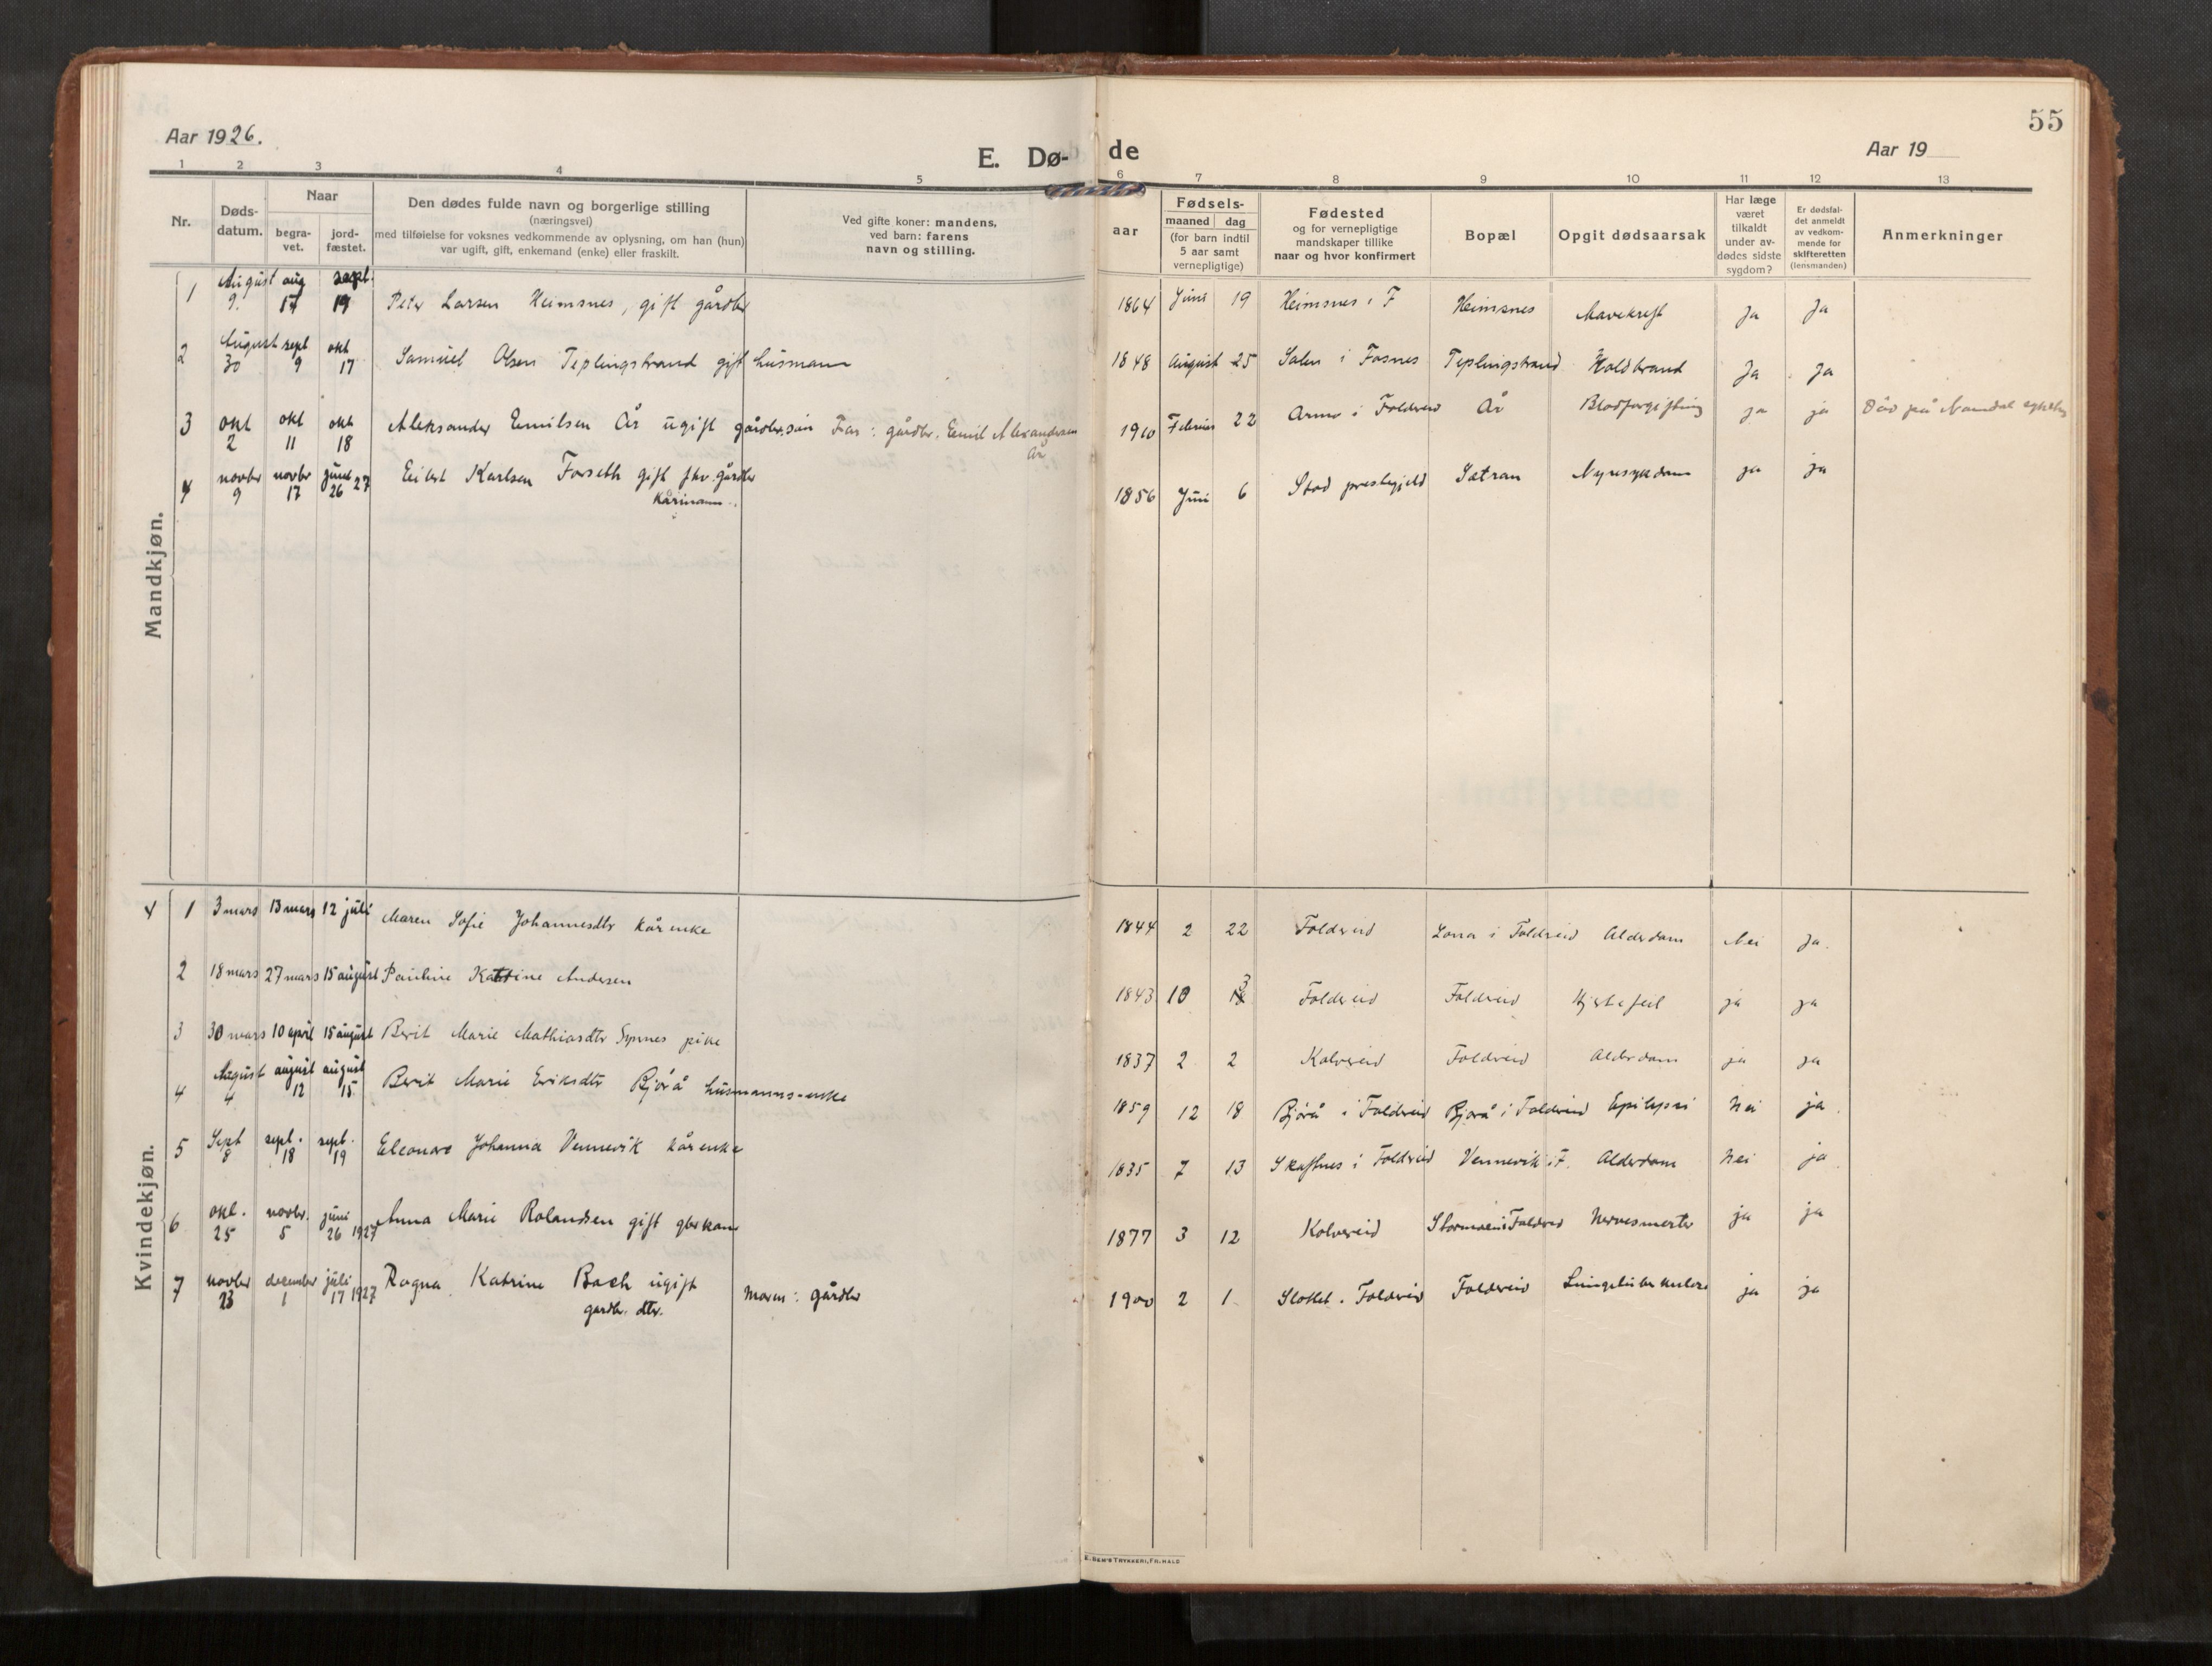 Aar 1926.
E. Dø-
de
Aar 19
55
1 2 3 4 5 6 7 8 9 10 11 12 13
Nr.
Døds-
datum.
Naar
begra-
vet.
jord-
fæstet.
Den dødes fulde navn og borgerlige stilling
(næringsvei)
med tilføielse for voksnes vedkommende av oplysning, om han (hun)
var ugift, gift, enkemand (enke) eller fraskilt.
Ved gifte koner: mandens,
ved barn: farens
navn og stilling.
aar
Fødsels-
maaned dag
(for barn indtil
5 aar samt
vernepligtige)
Fødested
og for vernepligtige
mandskaper tillike
naar og hvor konfirmert
Bopæl
Opgit dødsaarsak
Har læge
været
tilkaldt
under av-
dødes sidste
sygdom?
Er dødsfal-
det anmeldt
av vedkom-
mende for
skifteretten
(lensmanden)
Anmerkninger
Mandkjøn.
1 August 9. aug 17 sept. 19 Peter Larsen Heimsnes, gift gårdbr 1864 Juni 19 Heimsnes i F Heimsnes Mavekreft Ja Ja
2 August 30 sept 9 okt 17 Samuel Olsen Teplingstrand gift husmann 1848 August 25 Salen i Fosnes Teplingstrand Koldbrand Ja Ja
3 okt 2 okt 11 okt 18 Aleksander Emilsen År ugift gårdbr.sön Far: gårdbr. Emil Alexandersen År 1910 Februar 22 Armo i Foldereid År Blodforgiftning ja ja Död på Namdal sykehus
4 novbr 9 novbr 17 juni 26 27 Eilert Karlsen Forseth gift fhv. gårdbr 1856 Juni 6 Stod prestegjeld Sætran Nyresykdom ja ja
Kårmann.
Kvindekjøn.
1 3 mars 13 mars 12 juli Maren Sofie Johannesdtr kårenke 1844 2 22 Foldereid Lona i Foldreid Alderdom Nei Ja.
2 18 mars 27 mars 15 august Pauline Katrine Andersen 1843 10 3 Foldereid Foldreid Hjertefeil ja ja
3 30 mars 10 april 15 august Berit Marie Mathiasdtr Synnes pike 1837 2 2 Kolvereid Foldreid Alderdom ja ja
4 August 4 august 12 august 15 Berit Marie Eriksdtr Bjørå husmanns-enke 1859 12 18 Bjørå i Foldreid Bjørå i Foldreid Epilepsi Nei ja
5 Sept 8 sept. 18 sept. 19 Eleonore Johanna Vennevik kårenke 1835 7 13 Skaftnes i Foldreid Vennevik i F. Alderdom Nei ja
6 okt. 25 novbr. 5 juni 26 1927 Anna Marie Rolandsen gift gbr kone 1877 3 12 Kolvereid Stormoen i Foldreid Nervesmerter ja ja
7 novbr 23 december 1 juli 17 1927 Ragna Katrine Bach ugift Moren: gårdbr 1900 2 1 Slottet. Foldreid Foldereid Lungetuberkulose ja ja
gardbr. dtr.
E. SEM'S TRYKKERI, FR. HALD